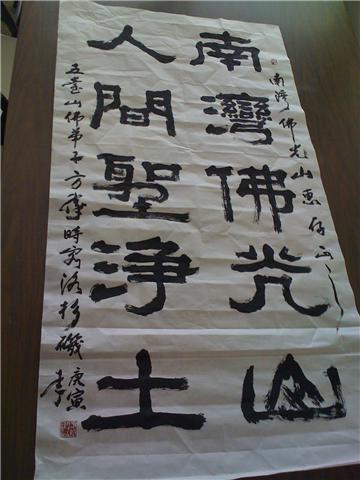 南灣佛光山惠存正之
南灣佛光山
人間聖淨土
五臺山佛弟子方時客洛杉磯庚寅